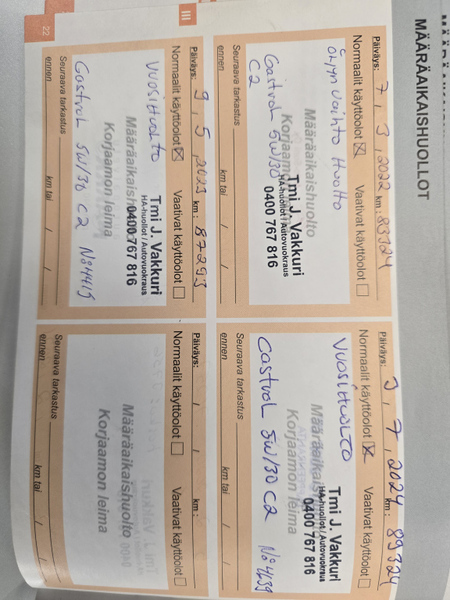 MÄÄRÄAIKAISHUOLLOT
Päiväys: 7 / 3 / 2022 km: 83324
Normaalit käyttöolot ☒ Vaativat käyttöolot ☐
Öljyn vaihto Huolto
Määräaikaishuolto
Korjaamon leima
Castrol 5W/30
C2
Tmi J. Vakkuri
HA-huollot / Autovuokraus
0400 767 816
Seuraava tarkastus
ennen km tai / /
Päiväys: 3 / 7 / 2024 km: 89324
Normaalit käyttöolot ☒ Vaativat käyttöolot ☐
Vuosihuolto
Määräaikaishuolto
Korjaamon leima
Tmi J. Vakkuri
HA-huollot / Autovuokraus
0400 767 816
Castrol 5W/30 C2 No4239
Seuraava tarkastus
ennen km tai / /
III
Päiväys: 9 / 5 / 2023 km: 87293
Normaalit käyttöolot ☒ Vaativat käyttöolot ☐
Vuosihuolto
Määräaikaishuolto
Korjaamon leima
Tmi J. Vakkuri
HA-huollot / Autovuokraus
0400 767 816
Castrol 5W/30 C2 No4419
Seuraava tarkastus
ennen km tai / /
Päiväys: / / km:
Normaalit käyttöolot ☐ Vaativat käyttöolot ☐
Määräaikaishuolto
Korjaamon leima
Seuraava tarkastus
ennen km tai / /
22